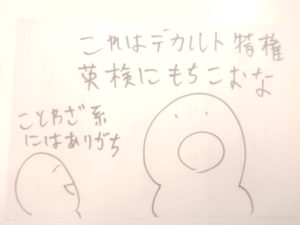 これはデカルト特権
英検にもちこむな
ことわざ系
にはありがち